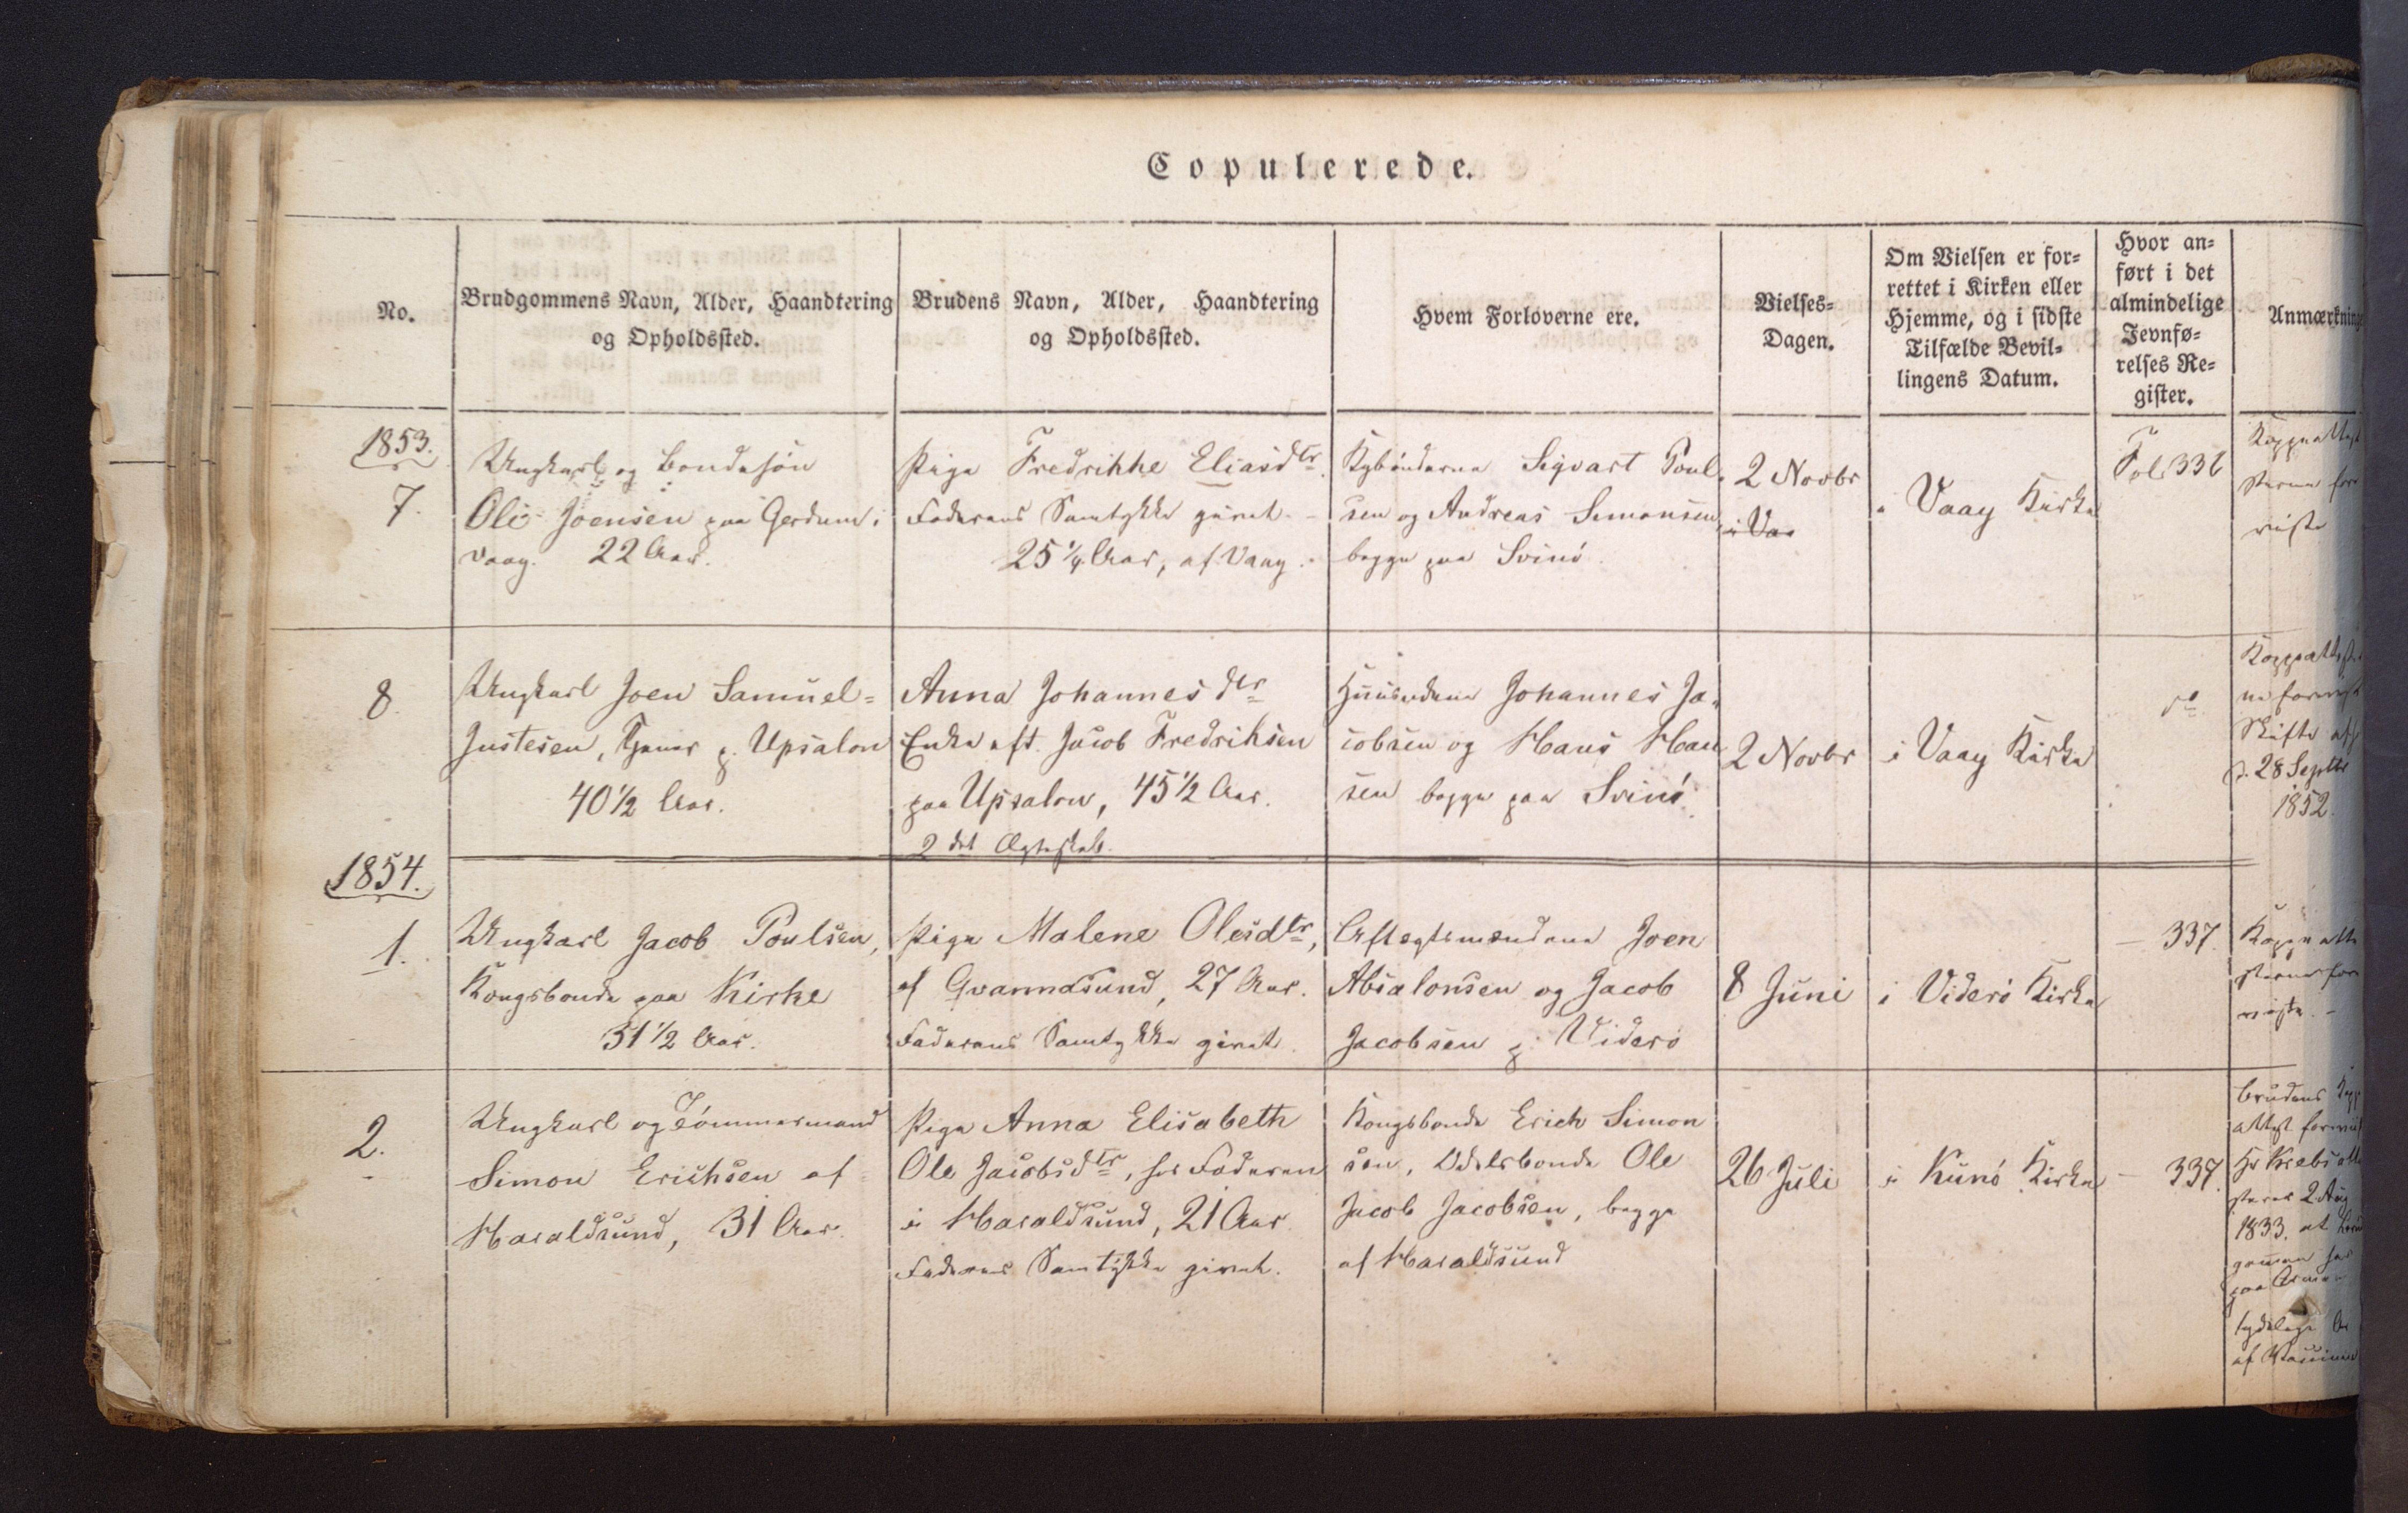 Copulerede.
No.
Brudgommens Navn, Alder, Haandtering
og Opholdssted.
Brudens Navn, Alder, Haandtering
og Opholdssted.
Hvem Forloverne ere.
Vielses-
Dagen.
Om Vielsen er for-
rettet i Kirken eller
Hjemme, og i sidste
Tilfælde Bevil-
lingens Datum.
Hvor an-
ført i det
almindelige
Jevnfø-
relses Re-
gister.
Anmærkninge
1853.
7.
Ungkarl og Bondesøn
Ole Joensen paa Gerdum i
Vaag. 22 Aar.
Pige Fredrikke Eliasdtr.
Faderens Samtykke givet.
25 1/4 Aar, af Vaag.
Sigvart Poul-
sen og Andreas Simonsen,
begge paa Svinö.
2 Novbr
i Vaag Kirke
Fol 336
Koppeattest
sterne fore
viste
8.
Ungkarl Joen Samuel-
Justesen, Tjener p. Upsalon
40 1/2 Aar.
Anna Johannesdtr
Enke eft. Jacob Fredriksen
paa Upsalon, 45 1/2 Aar.
2det Ægteskab.
Huusmændene Johannes Ja-
cobsen og Hans Han
sen begge paa Svinö.
2 Novbr
i Vaag Kirke
do
Skifte
d. 28 Septbr
1852.
1854.
1.
Ungkarl Jacob Poulsen,
Kongsbonde paa Kirke
31 1/2 Aar.
Pige Malene Olesdtr,
af Qvannasund, 27 Aar.
Faderens Samtykke givet.
Aftægtsmændene Joen
Absalonsen og Jacob
Jacobsen p. Viderö
8 Juni
i Viderö Kirke
— 337.
Koppeatte
sterne fore
viste. –
2.
Ungkarl og Tömmermand
Simon Erichsen af
Haraldsund, 31 Aar.
Pige Anna Elisabeth
Ole Jacobsdtr, hos Faderen
i Haraldsund, 21 Aar
Faderens Samtykke givet.
Kongsbonde Erich Simon
sen, Odelsbonde Ole
Jacob Jacobsen, begge
af Haraldsund
26 Juli
i Kunö Kirke
— 337.
Brudens Kopp
attest
Hr Krebs atte
sterer 2 Aug
1833. at Brud
gommen har
paa Armen
tydelige Ar
af Vaccinen